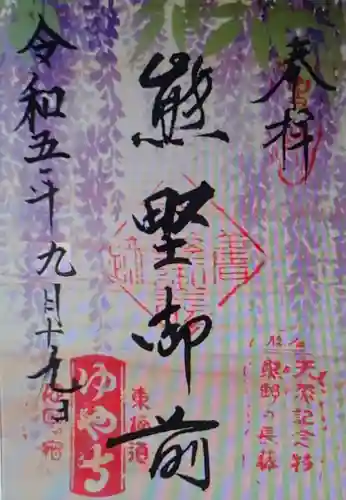 奉拝
天然記念物
熊野の長藤
熊野御前
東海道
ゆや寺
令和五年九月十九日